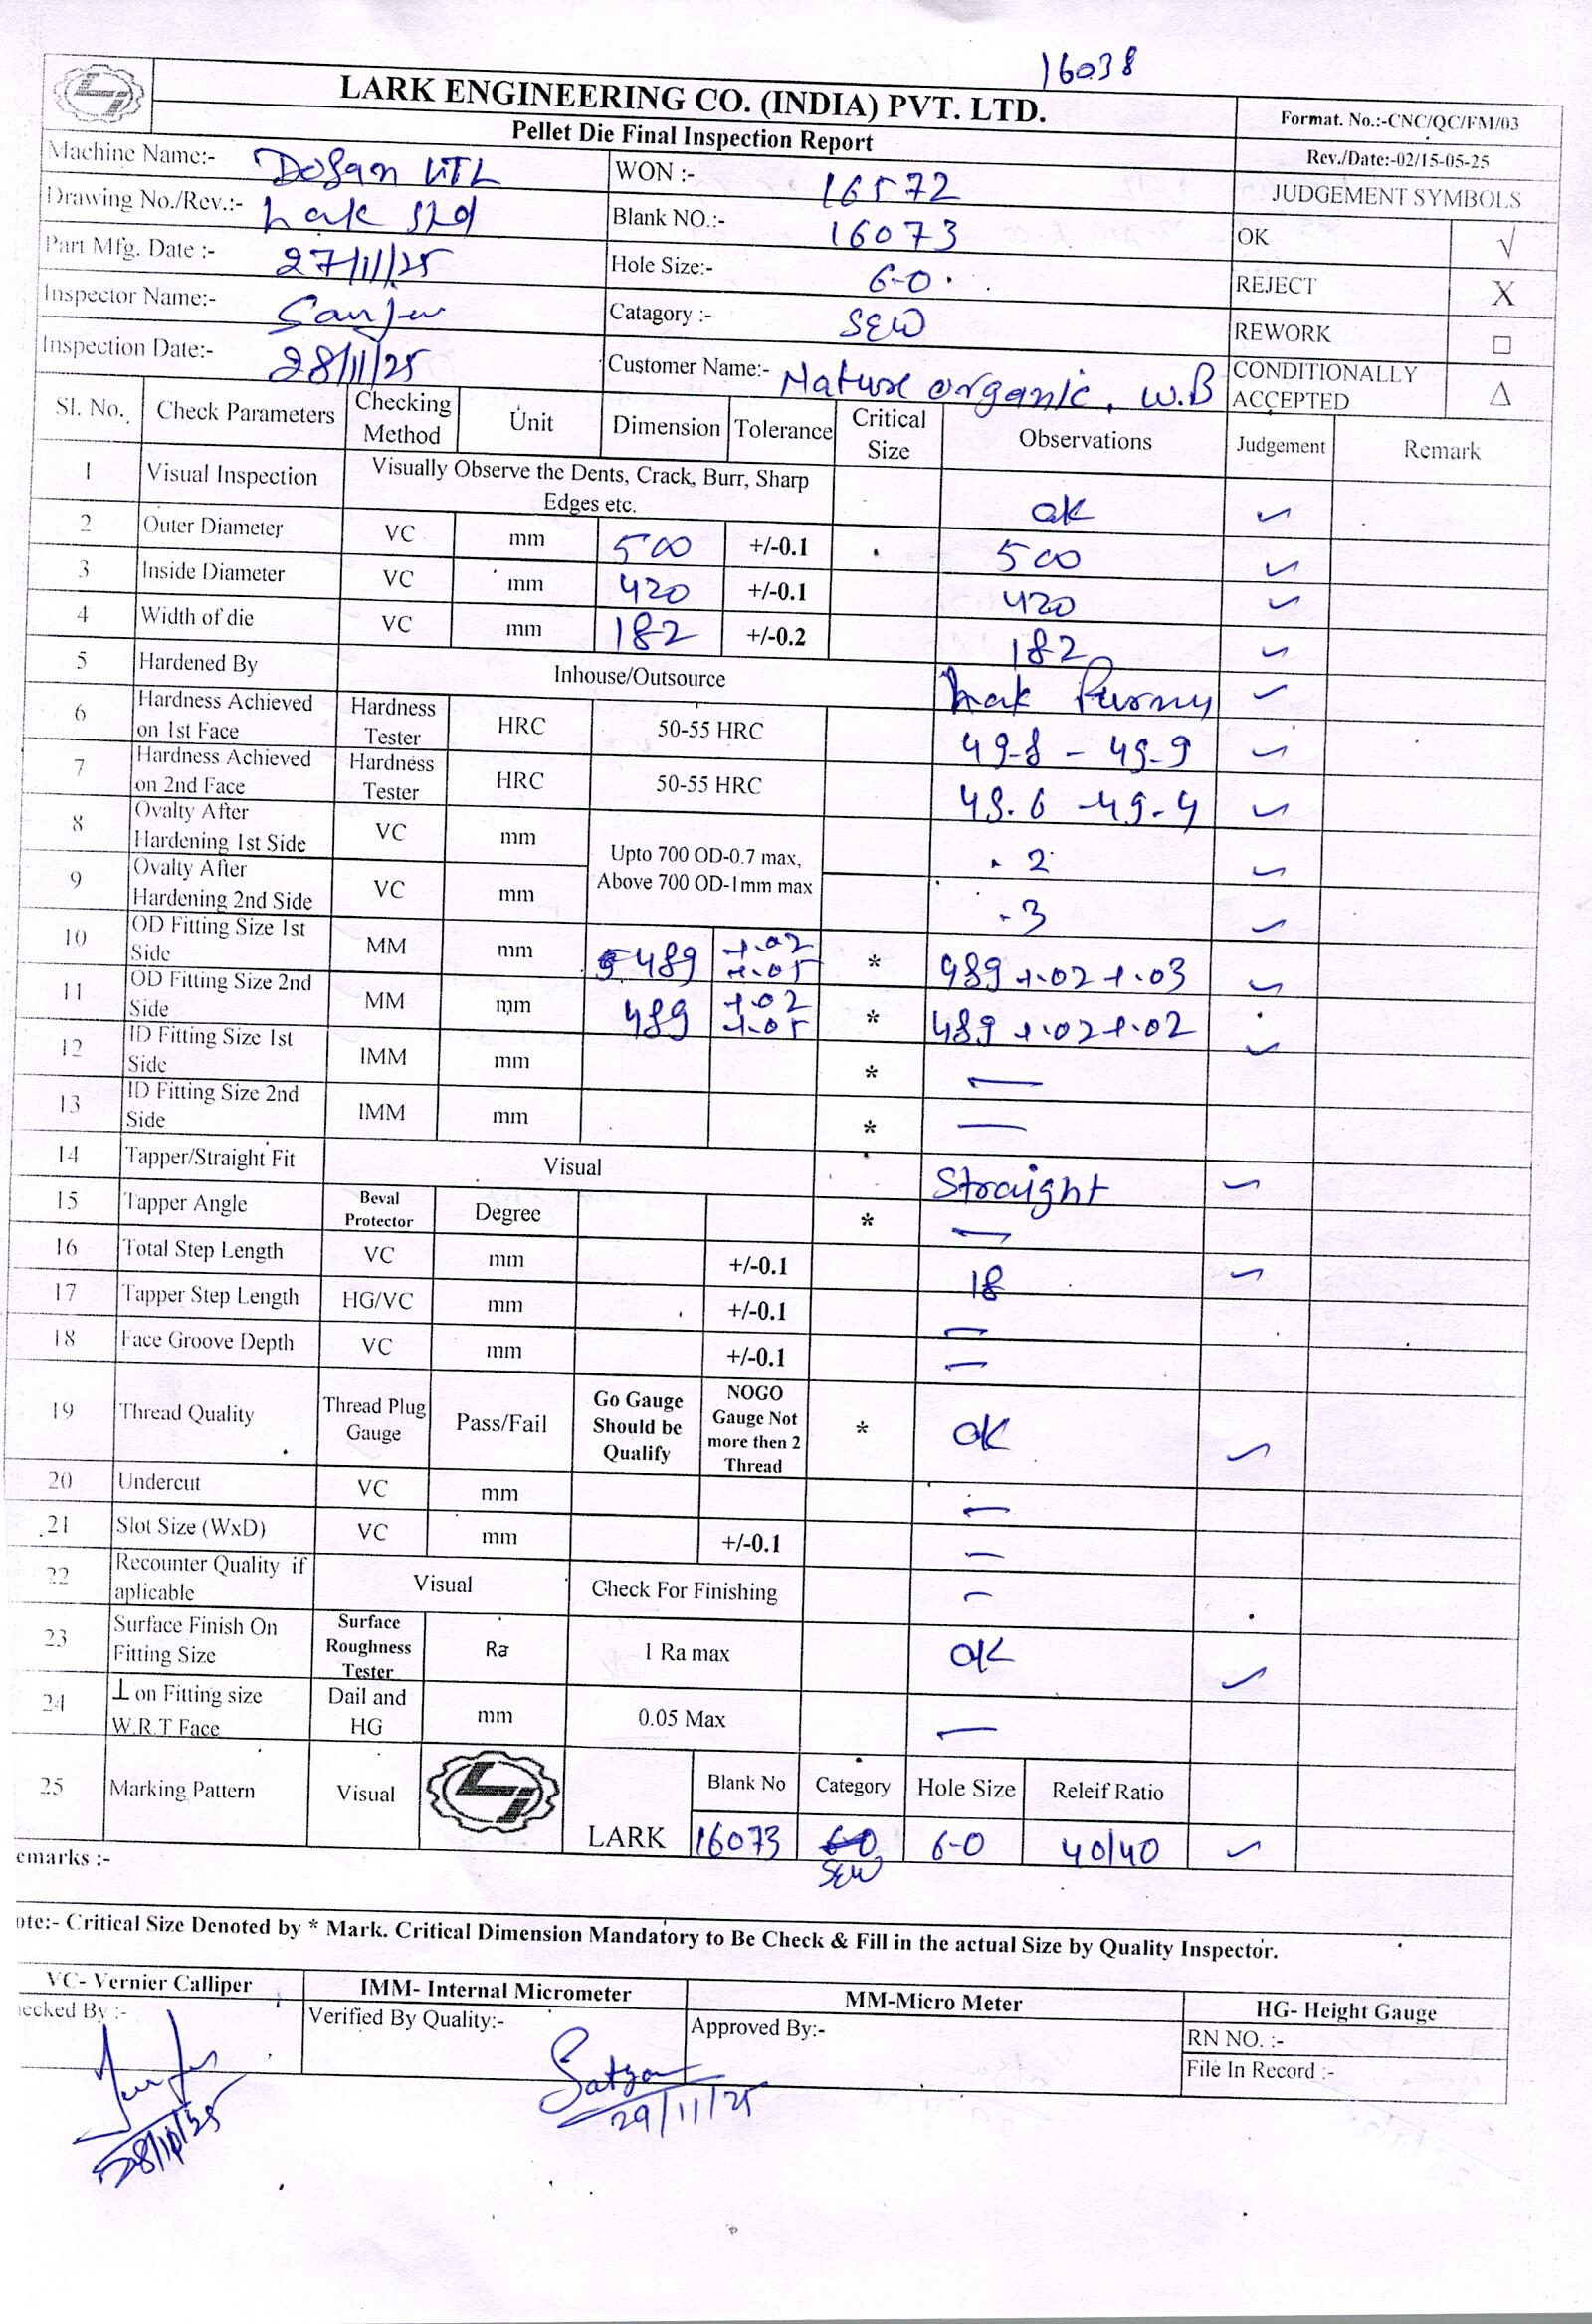 16038
LARK ENGINEERING CO. (INDIA) PVT. LTD.
Pellet Die Final Inspection Report
Format. No.:-CNC/QC/FM/03
Rev./Date:-02/15-05-25
Machine Name:- WON :- 16572
JUDGEMENT SYMBOLS
Drawing No./Rev.:- Lark Std Blank NO.:- 16073
OK √
Part Mfg. Date :- 27/11/25 Hole Size:- 6-0
REJECT X
Inspector Name:- Sanjeev Catagory :- SEW
REWORK □
Inspection Date:- 28/11/25 Customer Name:- Nature organic, W.B
CONDITIONALLY ACCEPTED Δ
Sl. No. Check Parameters Checking Method Unit Dimension Tolerance Critical Size Observations Judgement Remark
1 Visual Inspection Visually Observe the Dents, Crack, Burr, Sharp Edges etc. ok ✓
2 Outer Diameter VC mm 500 +/-0.1 500 ✓
3 Inside Diameter VC mm 420 +/-0.1 420 ✓
4 Width of die VC mm 182 +/-0.2 182 ✓
5 Hardened By Inhouse/Outsource ✓
6 Hardness Achieved on 1st Face Hardness Tester HRC 50-55 HRC 49-8 - 49-9 ✓
7 Hardness Achieved on 2nd Face Hardness Tester HRC 50-55 HRC 49.6 -49-4 ✓
8 Ovalty After Hardening 1st Side VC mm Upto 700 OD-0.7 max, Above 700 OD-1mm max .2 ✓
9 Ovalty After Hardening 2nd Side VC mm .3 ✓
10 OD Fitting Size 1st Side MM mm 489 +.02 +.05 * 489 +.02 +.03 ✓
11 OD Fitting Size 2nd Side MM mm 489 +.02 +.05 * 489 +.02 +.02 ✓
12 ID Fitting Size 1st Side IMM mm * —
13 ID Fitting Size 2nd Side IMM mm * —
14 Tapper/Straight Fit Visual Straight ✓
15 Tapper Angle Beval Protector Degree * —
16 Total Step Length VC mm +/-0.1 18 ✓
17 Tapper Step Length HG/VC mm +/-0.1 —
18 Face Groove Depth VC mm +/-0.1 —
19 Thread Quality Thread Plug Gauge Pass/Fail Go Gauge Should be Qualify NOGO Gauge Not more then 2 Thread * ok ✓
20 Undercut VC mm —
21 Slot Size (WxD) VC mm +/-0.1 —
22 Recounter Quality if aplicable Visual Check For Finishing —
23 Surface Finish On Fitting Size Surface Roughness Tester Ra 1 Ra max ok ✓
24 ⊥ on Fitting size W.R.T Face Dail and HG mm 0.05 Max —
25 Marking Pattern Visual LARK Blank No Category Hole Size Releif Ratio
16073 SEW 6-0 40/40 ✓
emarks :-
ote:- Critical Size Denoted by * Mark. Critical Dimension Mandatory to Be Check & Fill in the actual Size by Quality Inspector.
VC- Vernier Calliper IMM- Internal Micrometer MM-Micro Meter HG- Height Gauge
ecked By :- Verified By Quality:- Approved By:- RN NO. :-
File In Record :-
Satyam
29/11/25